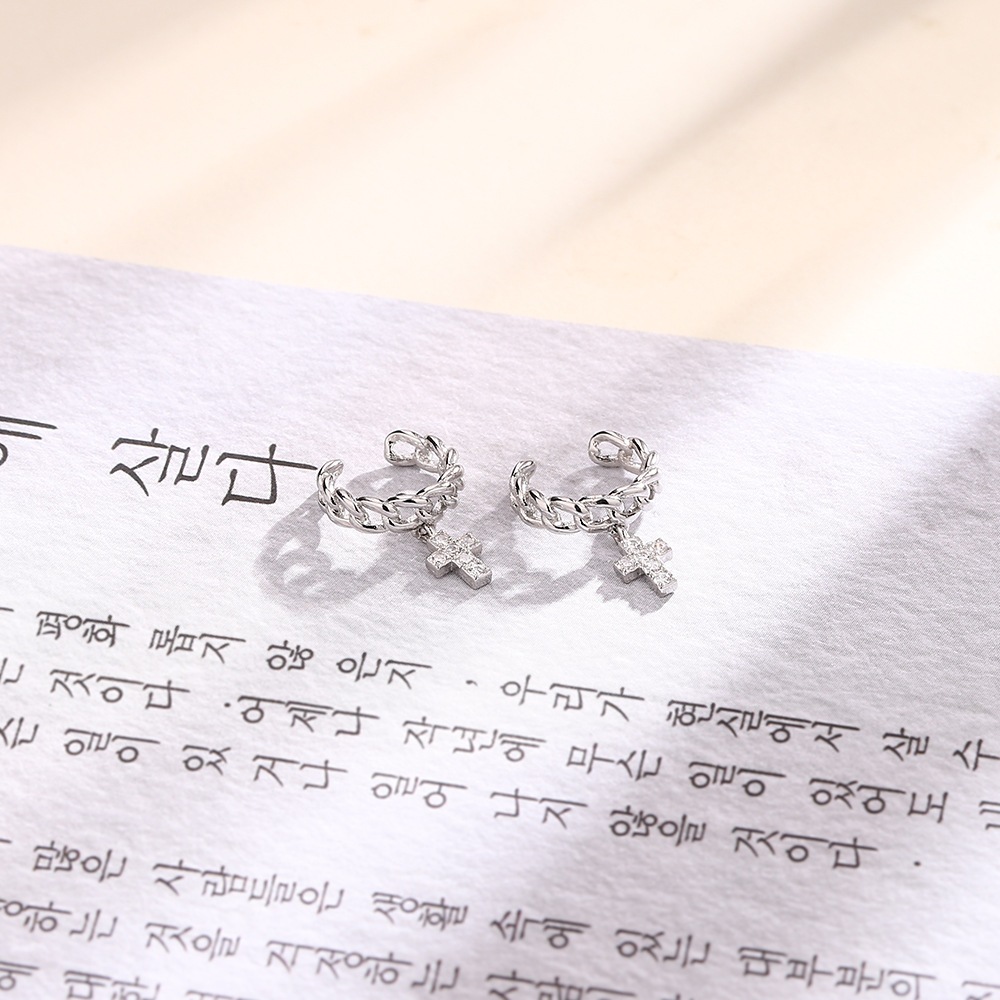 살다
평화 롭지 않 은지 , 우리가 현실에서 살 수
는 것이다 .어제나 작년에 무슨 일이 있어도
는 일이 있 거나 일어 나지 않을 것이다 .
많은 사람들은 생활 속에 있는 대부분의
하는 것을 걱정하는 사람이
에 대한